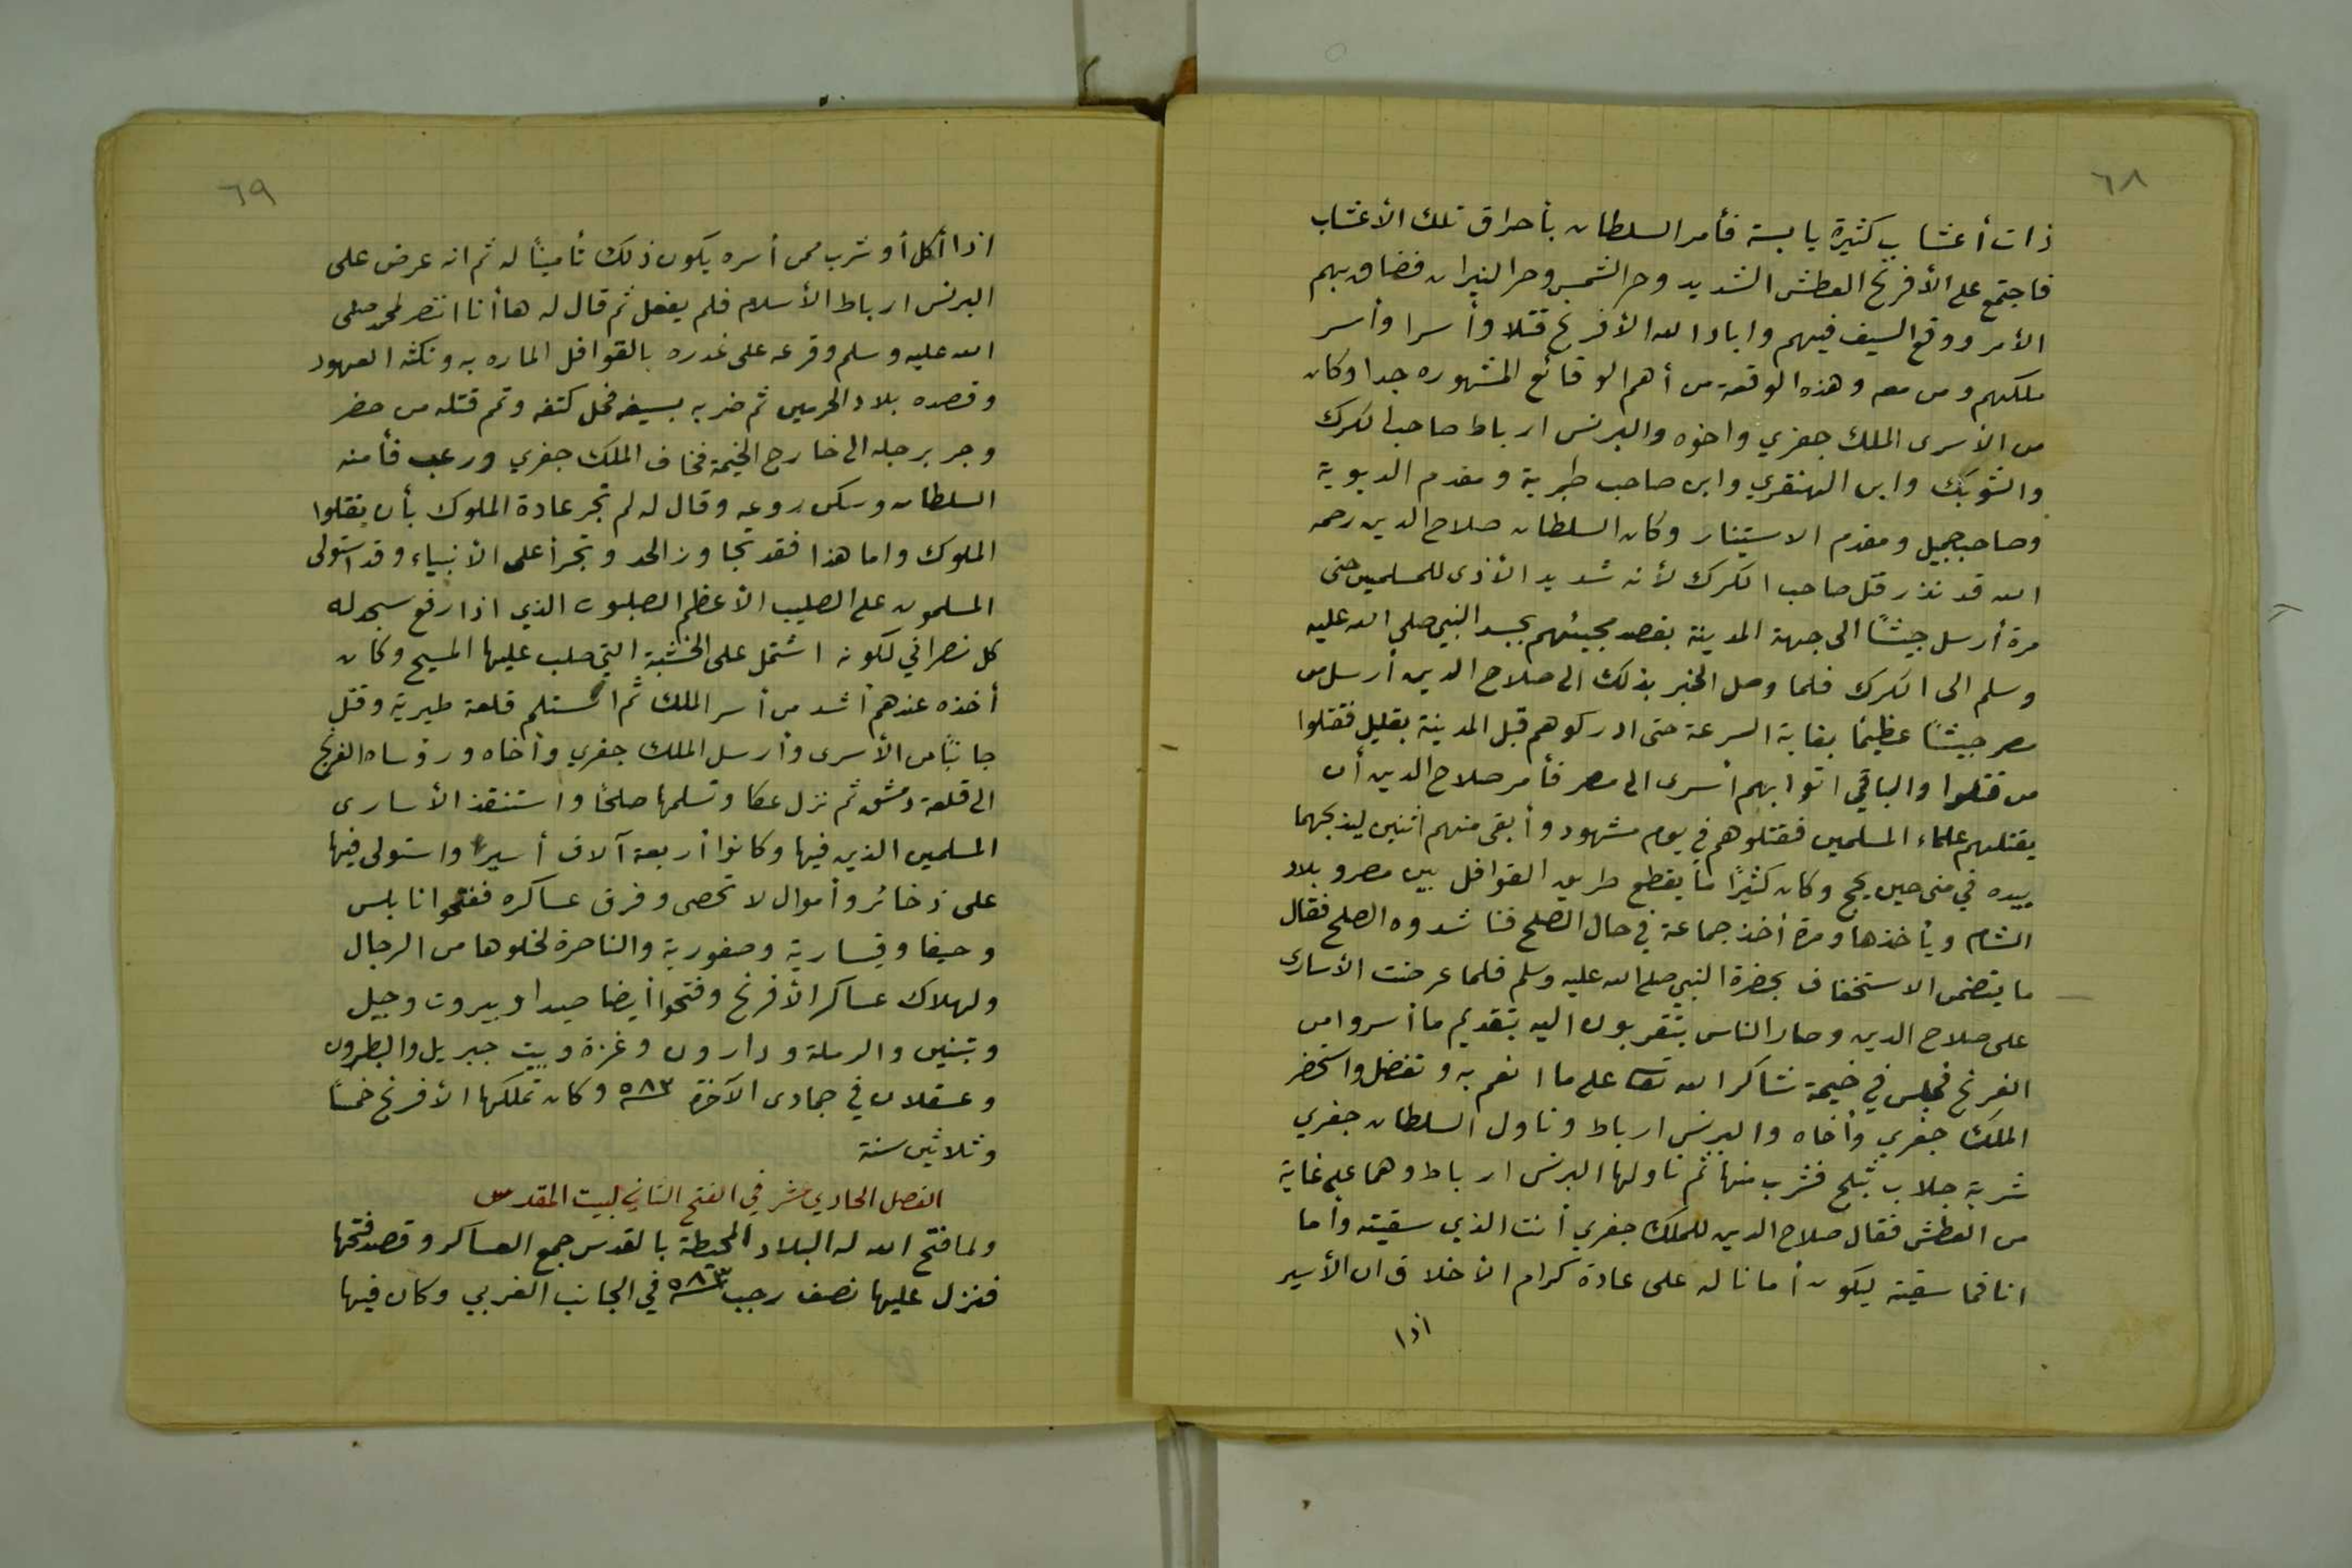 ٦٨
ذات أعشاب كثيرة يابسة فأمر السلطان بأحراق تلك الأعشاب
فاجتمع على الأفرنج العطش الشديد وحر الشمس وحر النيران فضاق بهم
الأمر ووقع السيف فيهم واباد الله الأفرنج قتلا وأسرا وأسر
ملكهم ومن معه وهذه الوقعة من أهم الوقائع المشهوره جدا وكان
من الأسرى الملك جفري واخوه والبرنس ارباط صاحب الكرك
والشوبك وابن الهنقري وابن صاحب طبرية ومقدم الديوية
وصاحب جبيل ومقدم الاستيتار وكان السلطان صلاح الدين رحمه
الله قد نذر قتل صاحب الكرك لأنه شديد الأذى للمسلمين حتى
مرة أرسل جيشًا الى جهة المدينة بقصد مجيئهم بجسد النبي صلى الله عليه
وسلم الى الكرك فلما وصل الخبر بذلك الى صلاح الدين أرسل من
مصر جيشًا عظيمًا بغاية السرعة حتى ادركوهم قبل المدينة بقليل فقتلوا
من قتلوا والباقي اتوا بهم أسرى الى مصر فأمر صلاح الدين أن
يقتلهم علماء المسلمين فقتلوهم في يوم مشهود وأبقى منهم اثنين ليذبحهما
بيده في منى حين يحج وكان كثيرًا ما يقطع طريق القوافل بين مصر وبلاد
الشام ويأخذها ومرة أخذ جماعة في حال الصلح فناشدوه الصلح فقال
ما يتضمن الاستخفاف بحضرة النبي صلى الله عليه وسلم فلما عرضت الأسارى
على صلاح الدين وصار الناس يتقربون اليه بتقديم ما أسروا من
الفرنج فجلس في خيمة شاكرا لله تعا على ما انعم به وتفضل واستحضر
الملك جفري وأخاه والبرنس ارباط وناول السلطان جفري
شربة جلاب بثلج فشرب منها ثم ناولها البرنس ارباط وهما على غاية
من العطش فقال صلاح الدين للملك جفري أنت الذي سقيته وأما
انا فما سقيته ليكون أمانا له على عادة كرام الأخلاق ان الأسير
اذا
٦٩
اذا أكل أو شرب ممن أسره يكون ذلك تأمينًا له ثم انه عرض على
البرنس ارباط الأسلام فلم يفعل ثم قال له ها أنا انتصر لمحمد صلى
الله عليه وسلم وقرعه على غدره بالقوافل الماره به ونكثه العهود
وقصده بلاد الحرمين ثم ضربه بسيفه فحل كتفه وتمم قتله من حضر
وجر برجله الى خارج الخيمة فخاف الملك جفري ورعب فأمنه
السلطان وسكن روعه وقال له لم تجر عادة الملوك بأن يقتلوا
الملوك واما هذا فقد تجاوز الحد وتجرأ على الأنبياء وقد استولى
المسلمون على الصليب الأعظم الصلبوت الذي اذا رفع سجد له
كل نصراني لكونه اشتمل على الخشبة التي صلب عليها المسيح وكان
أخذه عندهم أشد من أسر الملك ثم استلم قلعة طبرية وقتل
جانبًا من الأسرى وأرسل الملك جفري وأخاه ورؤساء الفرنج
الى قلعة دمشق ثم نزل عكا وتسلمها صلحًا واستنقذ الأسارى
المسلمين الذين فيها وكانوا أربعة آلاف أسير واستولى فيها
على ذخائر وأموال لا تحصى وفرق عساكره ففتحوا نابلس
وحيفا وقيسارية وصفورية والناصرة لخلوها من الرجال
ولهلاك عساكر الأفرنج وفتحوا أيضا صيدا وبيروت وجبيل
وتبنين والرملة ودارون وغزة وبيت جبريل والبطرون
وعسقلان في جمادى الآخرة ٥٨٣ وكان تملكها الأفرنج خمسًا
وثلاثين سنة
الفصل الحادي عشر في الفتح الثاني لبيت المقدس
ولما فتح الله له البلاد المحيطة بالقدس جمع العساكر وقصد فتحها
فنزل عليها نصف رجب ٥٨٣ في الجانب الغربي وكان فيها